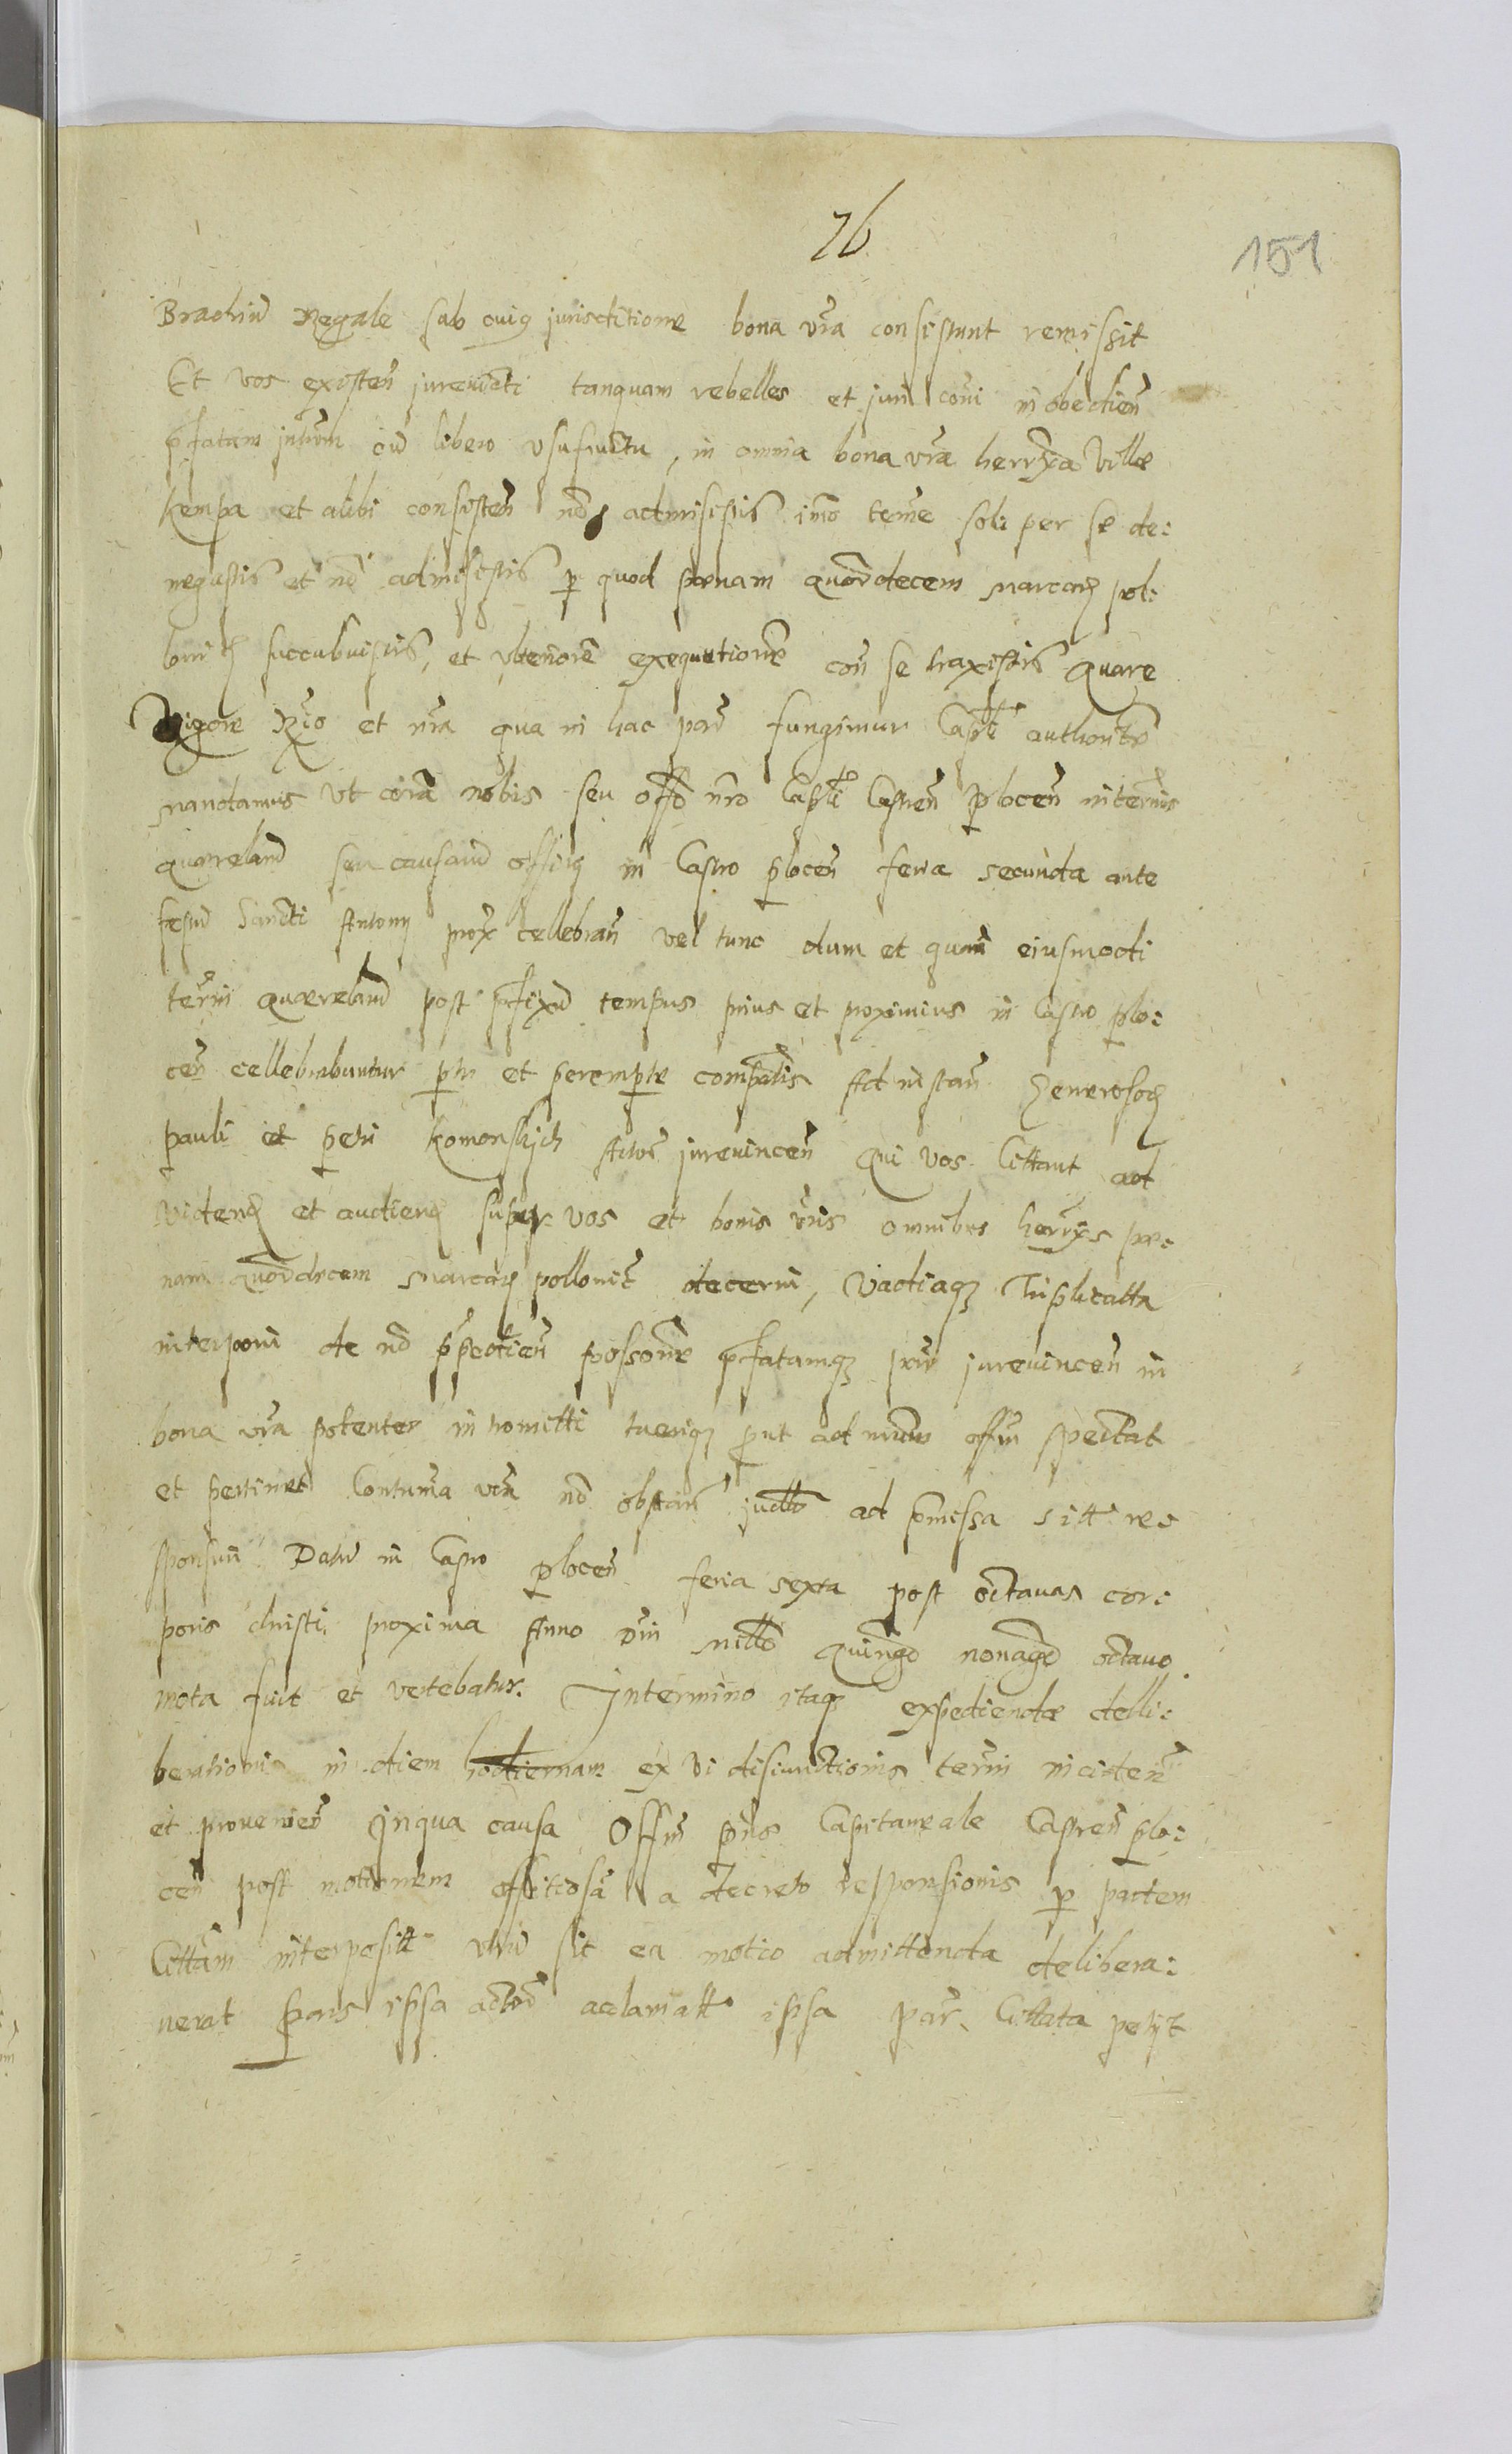 76
151
Brachiũ Regale sub cuiq jurisdictione bona vrã consistunt remissit
Et vos existeñ jurevicti tanquam rebelles et juri cõni inobedieñ
pfatam cũ libero usufructu, in omnia bona vrã herrxa Villæ
Kempa et alibi consisteñ nõ admisistis imo temre soli per se de:
negastis et nõ admisistis p quod pœnam quordecem marcarȝ pol:
loniȝ succubuistis, et ulteriorẽ exequutionẽ con se traxistis Quare
Vigore Rgio et nrã qua in hac parte fungimur Captli authoritẽ
mandamus Ut corã nobis seu offo nrõ Captli Castreñ Ploceñ in termis
quærelarũ seu causarũ offitiq in Castro ploceñ feria secunda ante
festũ Sancti Antonij prox cellebrañ vel tunc dum et quañ eiusmodi
termi quærelarũ post pfixũ tempus prius et proximius in Castro plo:
ceñ cellebrabuntur ptr et peremptr compatis Ad instañ Generosoȝ
Pauli et Petri Komorskich Actor jurevinceñ Qui vos Cittant ad
videnȝ et audienȝ super vos et bonis vris omnibus herrxs pœ:
nam quordecem marcarȝ polloniȝ decerni, Vadiaqȝ Triplicatta
interponi de nõ ppedieñ possonẽ pfatamqȝ ptẽ jurevinceñ in
bona vrã potenter intromitti tueriqȝ put ad nrum offm spectat
et pertinet Contumã vrã nõ obstañ judtr ad pmissa sitt re:
sponsuri Datũ in Castro ploceñ feria sexta post octauas cor:
poris christi proxima Anno Dni mille quingẽ nonagẽ octauo
mota fuit et vertebatur. In termino itaqȝ expediendæ delli:
berationis in diem hodiernam ex vi disiunctionis termi incideñ
et provenieñ In qua causa Offm pñs Capitaneale Castreñ plo:
ceñ post motionem offitiosã a decreto responsionis p partem
Cittãm interpositt utrũ sit ea motio admittenda delibera:
uerat Pars ipsa actor aclamatt ipsa par Cittata petijt